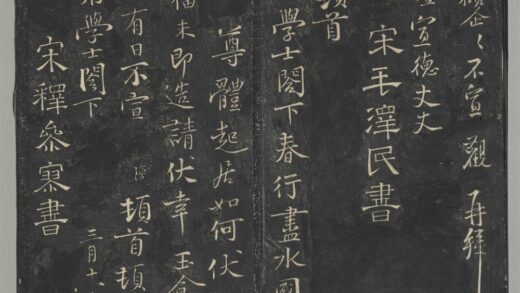 不宣 觀 再拜
宣德丈丈
宋毛澤民書
頓首
學士閣下春行盡水國
尊體起居如何伏
未即造請伏幸
有日不宣 頓首頓
學士閣下 三月十
宋釋參寥書